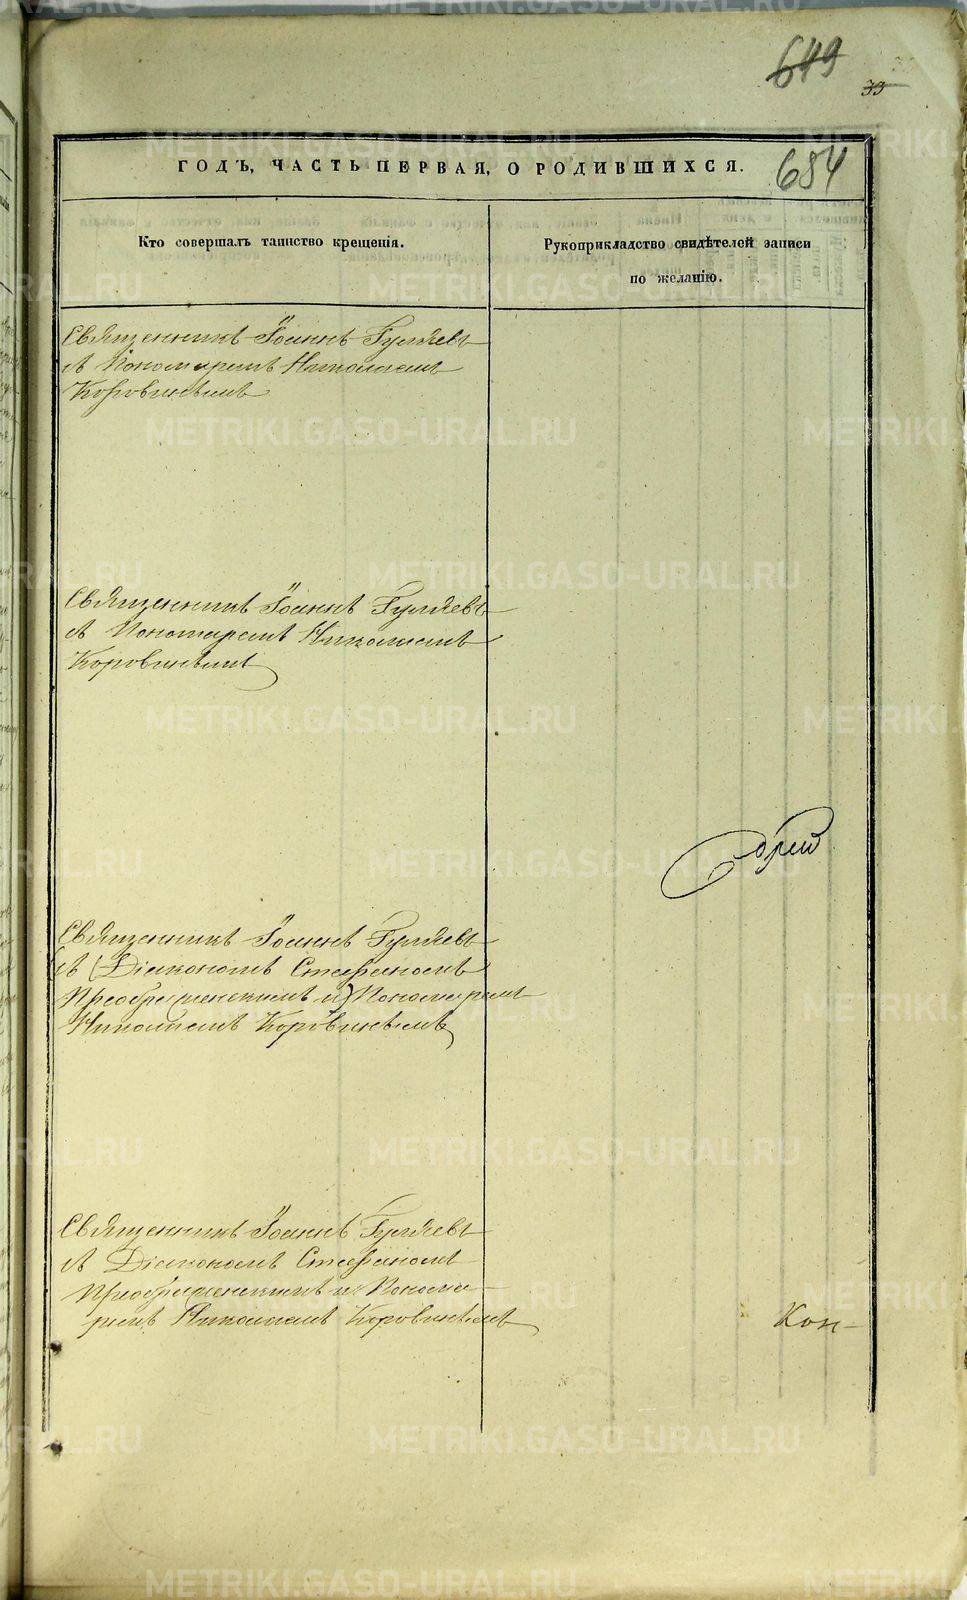 649
33
ГОДЪ, ЧАСТЬ ПЕРВАЯ, О РОДИВШИХСЯ.
684
Кто совершалъ таинство крещенія.
Рукоприкладство свидѣтелей записи
по желанію.
Священникъ Іоаннъ Гуляевъ
съ Пономаремъ Николаемъ
Коровинымъ
Священникъ Іоаннъ Гуляевъ
съ Пономаремъ Николаемъ
Коровинымъ
Священникъ Іоаннъ Гуляевъ
съ (Діакономъ Стефаномъ
Преображенскимъ и) Пономаремъ
Николаемъ Коровинымъ
Священникъ Іоаннъ Гуляевъ
съ Діакономъ Стефаномъ
Преображенскимъ и Понома-
ремъ Николаемъ Коровинымъ
Кон-
METRIKI.GASO-URAL.RU